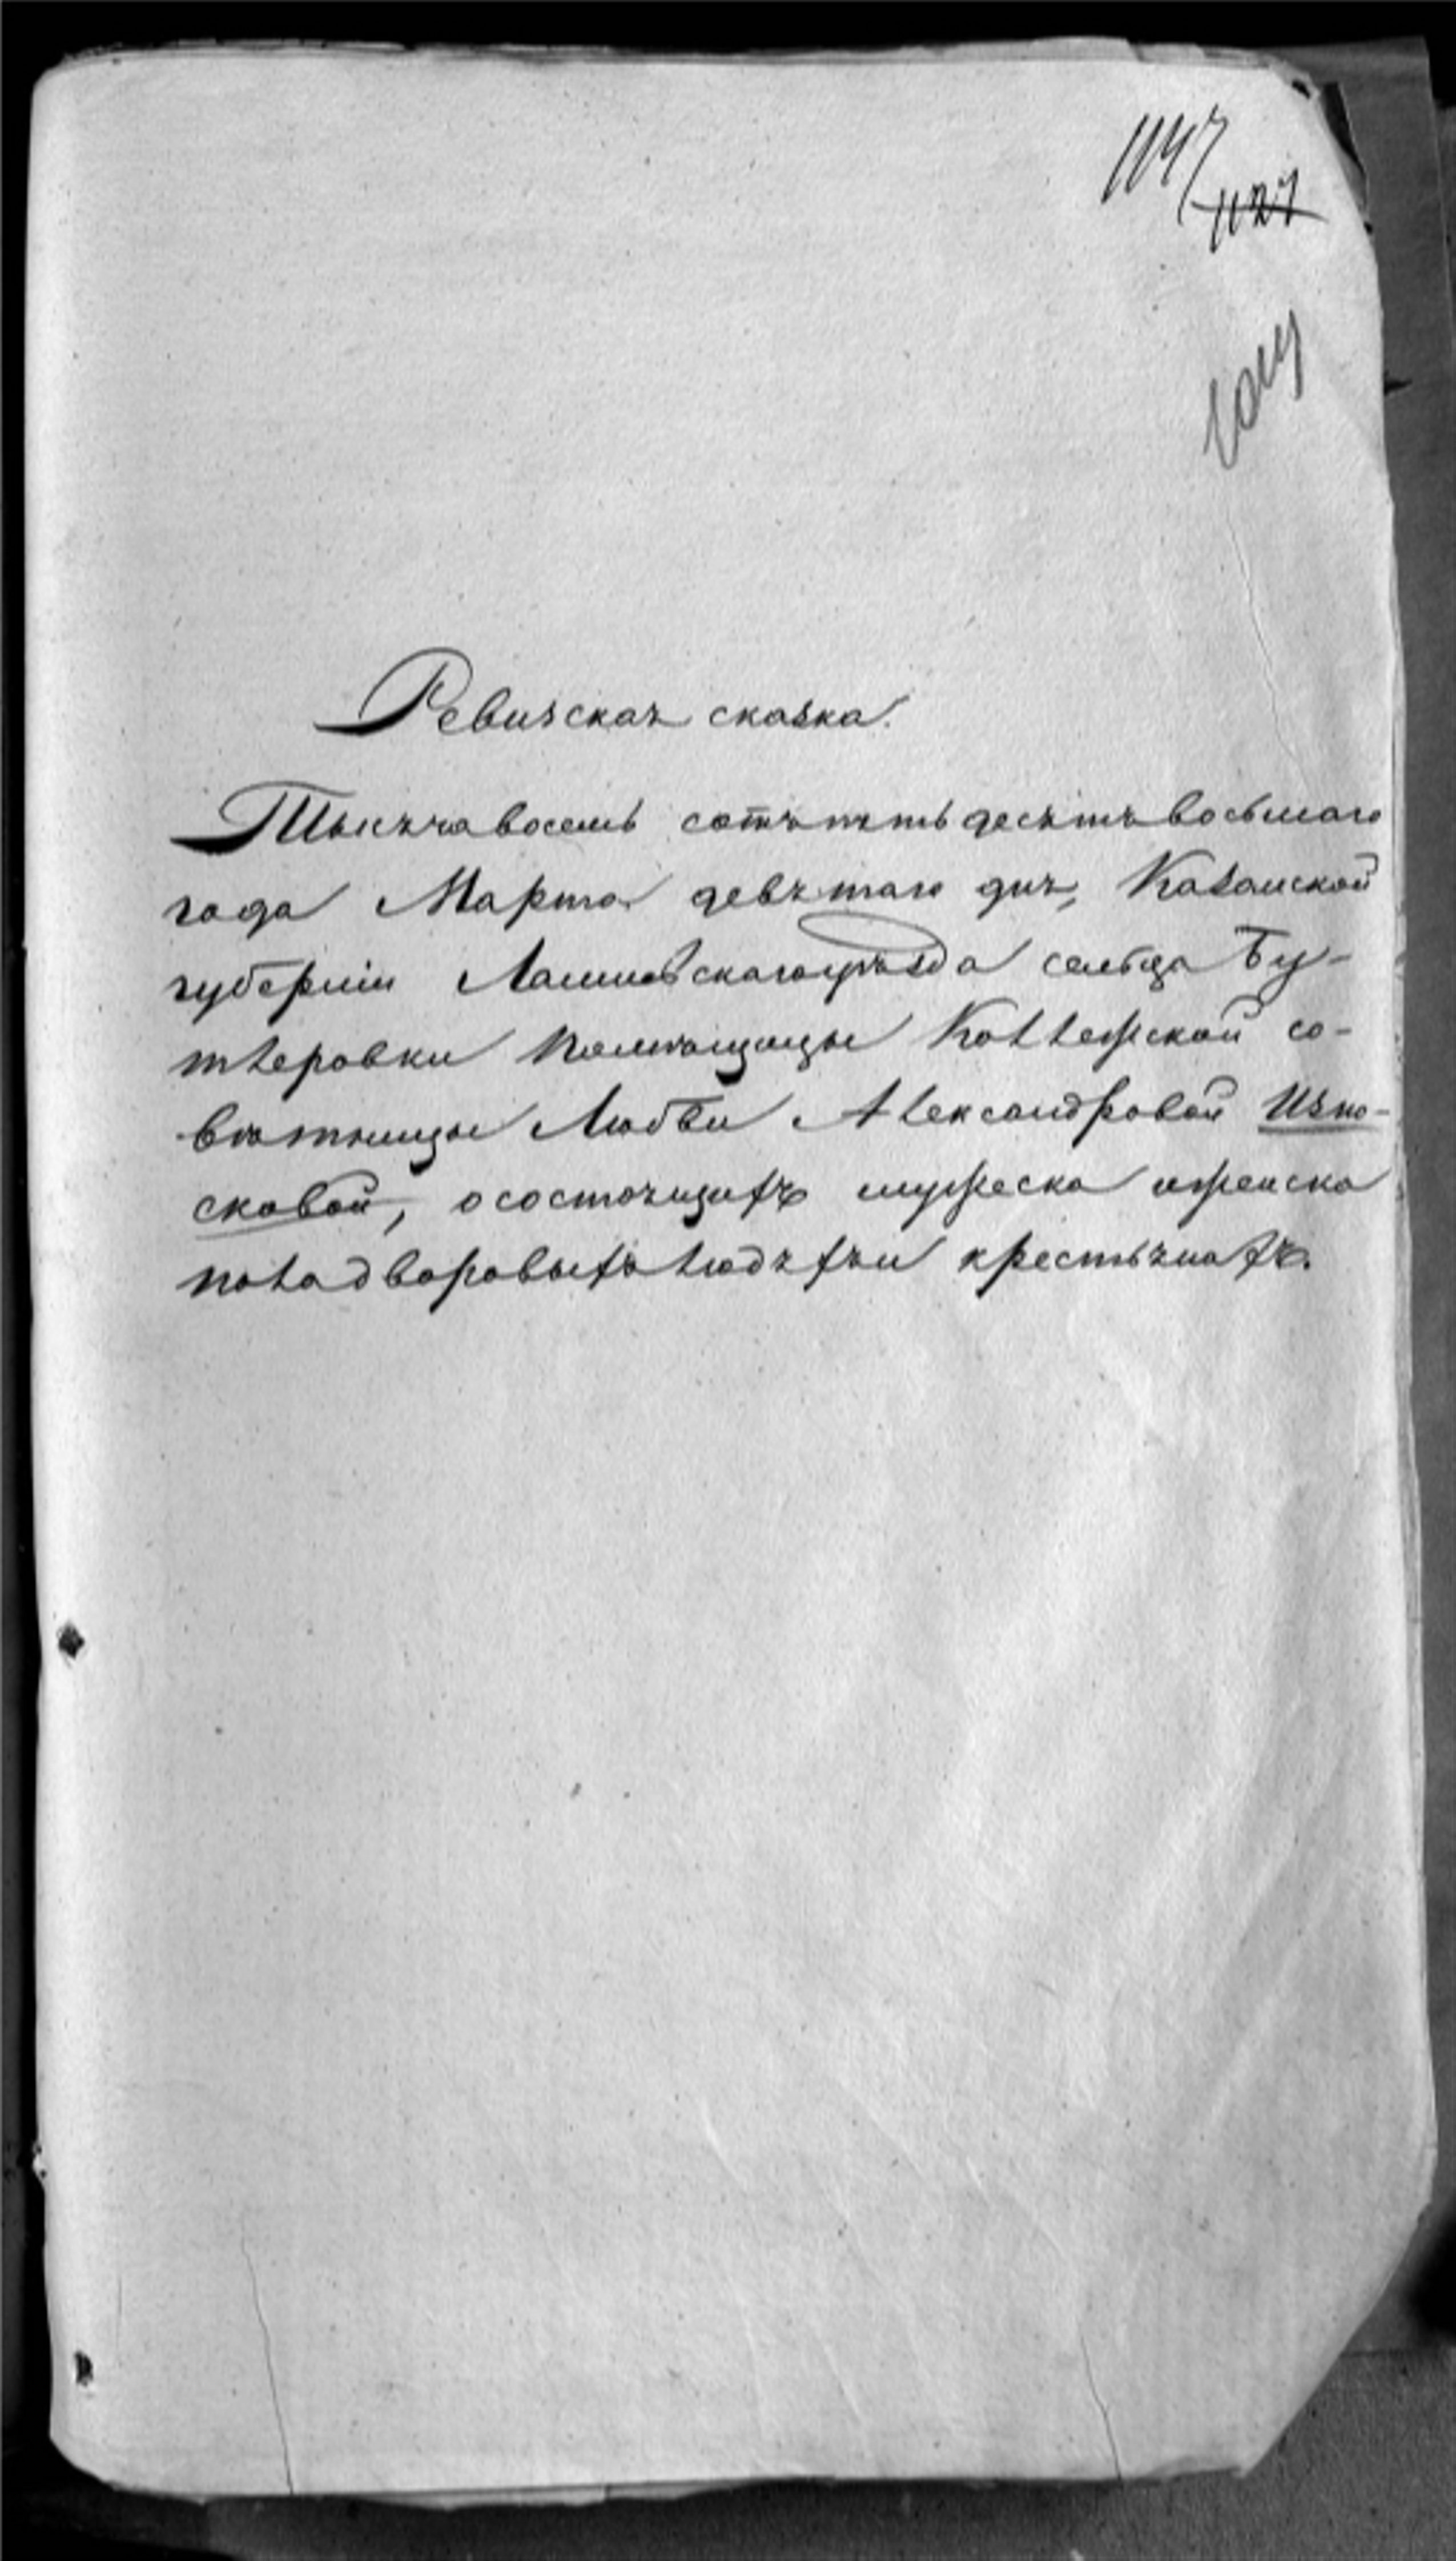 1147
1127
Ревизская сказка.
Тысяча восемь сотъ пять десятъ восьмаго
года Марта девятаго дня, Казанской
губерніи Лаишевскаго уѣзда сельца Бу-
тлеровки помѣщицы Коллежской со-
вѣтницы Любви Александровой Изно-
сковой, о состоящихъ мужеска и женска
пола дворовыхъ людяхъ и крестьянахъ.